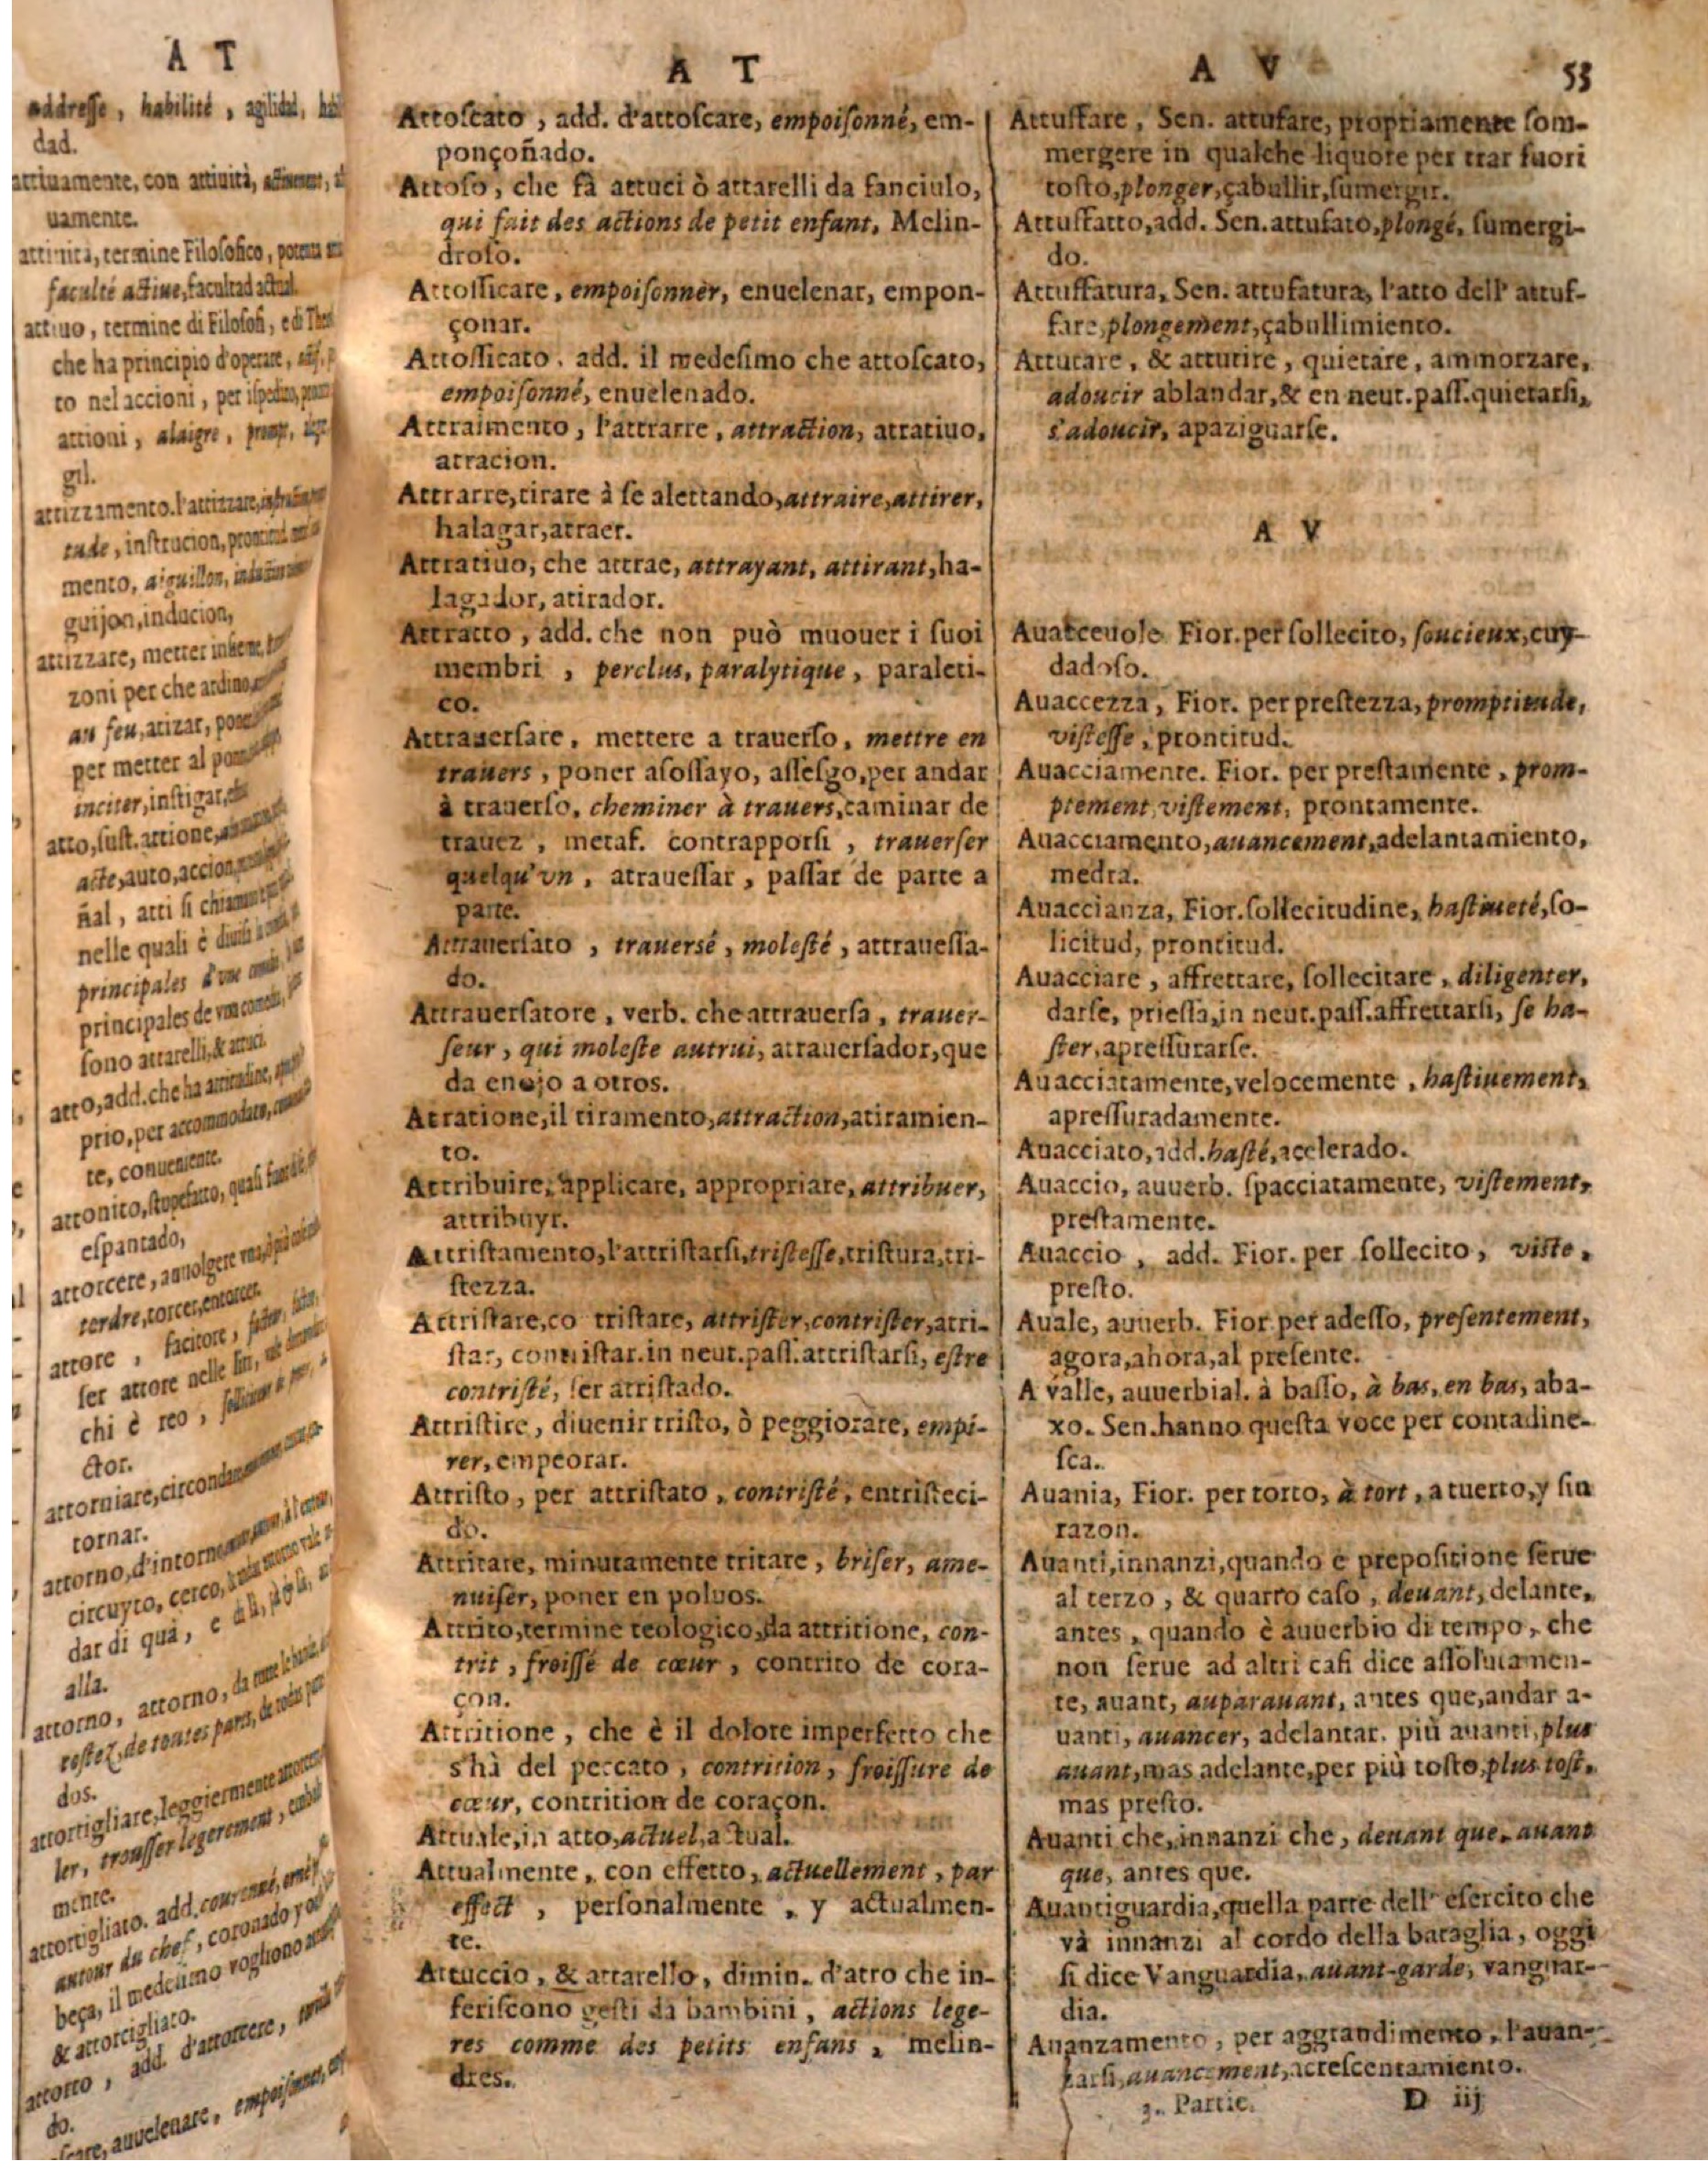 A T
addresse, habilité, agilidad,
dad.
attiuamente, con attiuità,
uamente.
attiuità, termine Filosofico,
faculté actiue, facultad actual.
attiuo, termine di Filosofi, e di
che ha principio d'operare,
to nel accioni, per
attioni, alaigre, promp,
gil.
attizzamento. l'attizzare,
tude, instrucion,
mento, aiguillon,
guijon, inducion,
attizzare, metter insieme,
zoni per che ardino,
au feu, atizar,
per metter al
inciter, instigar,
atto, sust. attione,
acte, auto, accion,
ñal, atti si chiamano
nelle quali è
principales d'vne
principales de vna
sono attarelli, & attuci.
atto, add. che ha attitudine,
prio, per accommodato,
te, conueniente.
attonito, stupefatto, quasi
espantado,
attorcere, auuolgere
terdre, torcer, entorcer.
attore, facitore,
ser attore nelle liti,
chi è reo,
ctor.
attorniare, circondare
tornar.
attorno, d'intorno
circuyto, cerco,
dar di quà, e di là,
alla.
attorno, attorno, da
costez, de toutes pars, de
dos.
attortigliare, leggiermente
ler, trousser legerement,
mente.
attortigliato. add. couronné,
autour du chef, coronado y
beça, il medesimo vogliono
& attorcigliato.
attorto, add. d'attorcere,
do.
auuelenare, empoisonner,
A T
Attoscato, add. d'attoscare, empoisonné, em-
ponçoñado.
Attoso, che fà attuci ò attarelli da fanciulo,
qui fait des actions de petit enfant, Melin-
droso.
Attossicare, empoisonner, enuelenar, empon-
çonar.
Attossicato. add. il medesimo che attoscato,
empoisonné, enuelenado.
Attraimento, l'attrarre, attraction, atratiuo,
atracion.
Attrarre, tirare à se alettando, attraire, attirer,
halagar, atraer.
Attratiuo, che attrae, attrayant, attirant, ha-
lagador, atirador.
Attratto, add. che non può muouer i suoi
membri, perclus, paralytique, paraleti-
co.
Attrauersare, mettere a trauerso, mettre en
trauers, poner asossayo, assesgo, per andar
à trauerso, cheminer à trauers, caminar de
trauez, metaf. contrapporsi, trauerser
quelqu'vn, atrauessar, passar de parte a
parte.
Attrauersato, trauersé, molesté, attrauessa-
do.
Attrauersatore, verb. che attrauersa, trauer-
seur, qui moleste autrui, atrauersador, que
da enojo a otros.
Atratione, il tiramento, attraction, atiramien-
to.
Attribuire, applicare, appropriate, attribuer,
attribuyr.
Attristamento, l'attristarsi, tristesse, tristura, tri-
stezza.
Attristare, co tristare, attrister, contrister, atri-
star, contristar. in neut. pass. attristarsi, estre
contristé, ser atristado.
Attristire, diuenir tristo, ò peggiorare, empi-
rer, empeorar.
Attristo, per attristato, contristé, entristeci-
do.
Attritare, minutamente tritare, briser, ame-
nuiser, poner en poluos.
Attrito, termine teologico, da attritione, con-
trit, froissé de cœur, contrito de cora-
çon.
Attritione, che è il dolore imperfetto che
s'hà del peccato, contrition, froissure de
cœur, contrition de coraçon.
Attuale, in atto, actuel, actual.
Attualmente, con effetto, actuellement, par
effect, personalmente, y actualmen-
te.
Attuccio, & attarello, dimin. d'atto che in-
feriscono gesti da bambini, actions lege-
res comme des petits enfans, melin-
dres.
A V 53
Attuffare, Sen. attufare, propriamente som-
mergere in qualche liquore per trar fuori
tosto, plonger, çabullir, sumergir.
Attuffatto, add. Sen. attufato, plongé, sumergi-
do.
Attuffatura, Sen. attufatura, l'atto dell' attuf-
fare, plongement, çabullimiento.
Attutare, & attutire, quietare, ammorzare,
adoucir ablandar, & en neut. pass. quietarsi,
s'adoucir, apaziguarse.
A V
Auacceuole Fior. per sollecito, soucieux, cuy-
dadoso.
Auaccezza, Fior. per prestezza, promptitude,
vistesse, prontitud.
Auacciamente. Fior. per prestamente, prom-
ptement, vistement, prontamente.
Auacciamento, auancement, adelantamiento,
medra.
Auaccianza, Fior. sollecitudine, hastiueté, so-
licitud, prontitud.
Auacciare, affrettare, sollecitare, diligenter,
darse, priessa, in neut. pass. affrettarsi, se ha-
ster, apressurarse.
Auacciatamente, velocemente, hastiuement,
apressuradamente.
Auacciato, add. hasté, acelerado.
Auaccio, auuerb. spacciatamente, vistement,
prestamente.
Auaccio, add. Fior. per sollecito, viste,
presto.
Auale, auuerb. Fior. per adesso, presentement,
agora, ahora, al presente.
A valle, auuerbial. à basso, à bas, en bas, aba-
xo. Sen. hanno questa voce per contadine-
sca.
Auania, Fior. per torto, à tort, a tuerto, y sin
razon.
Auanti, innanzi, quando e prepositione serue
al terzo, & quarto caso, deuant, delante,
antes, quando è auuerbio di tempo, che
non serue ad altri casi dice assolutamen-
te, auant, auparauant, antes que, andar a-
uanti, auancer, adelantar. più auanti, plus
auant, mas adelante, per più tosto, plus tost,
mas presto.
Auanti che, innanzi che, deuant que, auant
que, antes que.
Auantiguardia, quella parte dell' esercito che
và innanzi al cordo della bataglia, oggi
si dice Vanguardia, auant-garde, vanguar-
dia.
Auanzamento, per aggrandimento, l'auan-
zarsi, auancement, acrescentamiento.
3. Partie. D iij